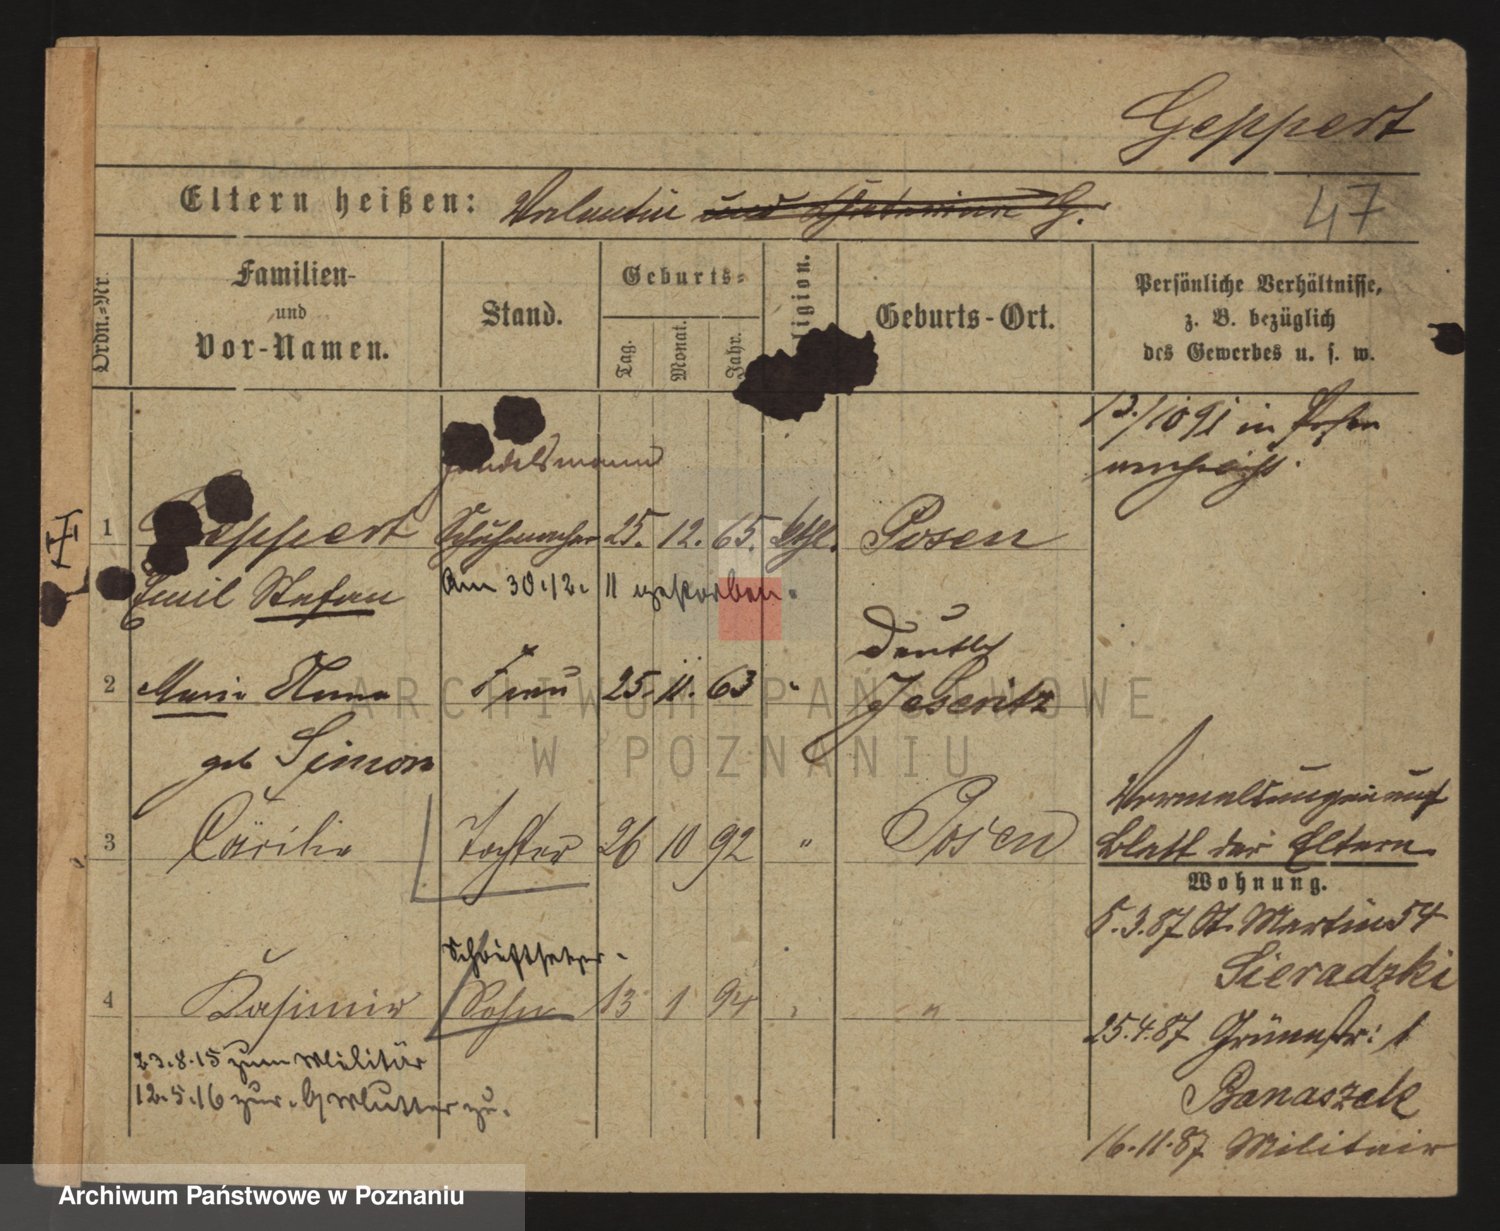 Geppert
47
Eltern heißen: Valentin und Katharina G.
Ordn.=Nr.
Familien-
und
Vor-Namen.
Stand.
Geburts=
Tag.
Monat.
Jahr.
ligion.
Geburts-Ort.
Persönliche Verhältnisse,
z. B. bezüglich
des Gewerbes u. s. w.
13./10 91 in Posen
Handelsmann
1 Geppert Schuhmacher 25. 12. 65. kthl. Posen
Emil Stefan Am 30.12. 11 gestorben.
2 Marie Anna Frau 25. 11. 63 " Deutsch
Jeseritz
geb Simon
3 Cäcilie Tochter 26 10 92 " Posen
Vermeldungen auf
Blatt der Eltern.
Wohnung.
5.3.87 St. Martin 54
Sieradzki
Schriftsetzer.
4 Kasimir Sohn 13 1 94 " "
25.4.87 Grünestr: 1
Banaszak
16.11.87 Militair
23.8.15 zum Militär
12.5.16 zur Mutter zu.
ARCHIWUM PAŃSTWOWE
W POZNANIU
Archiwum Państwowe w Poznaniu